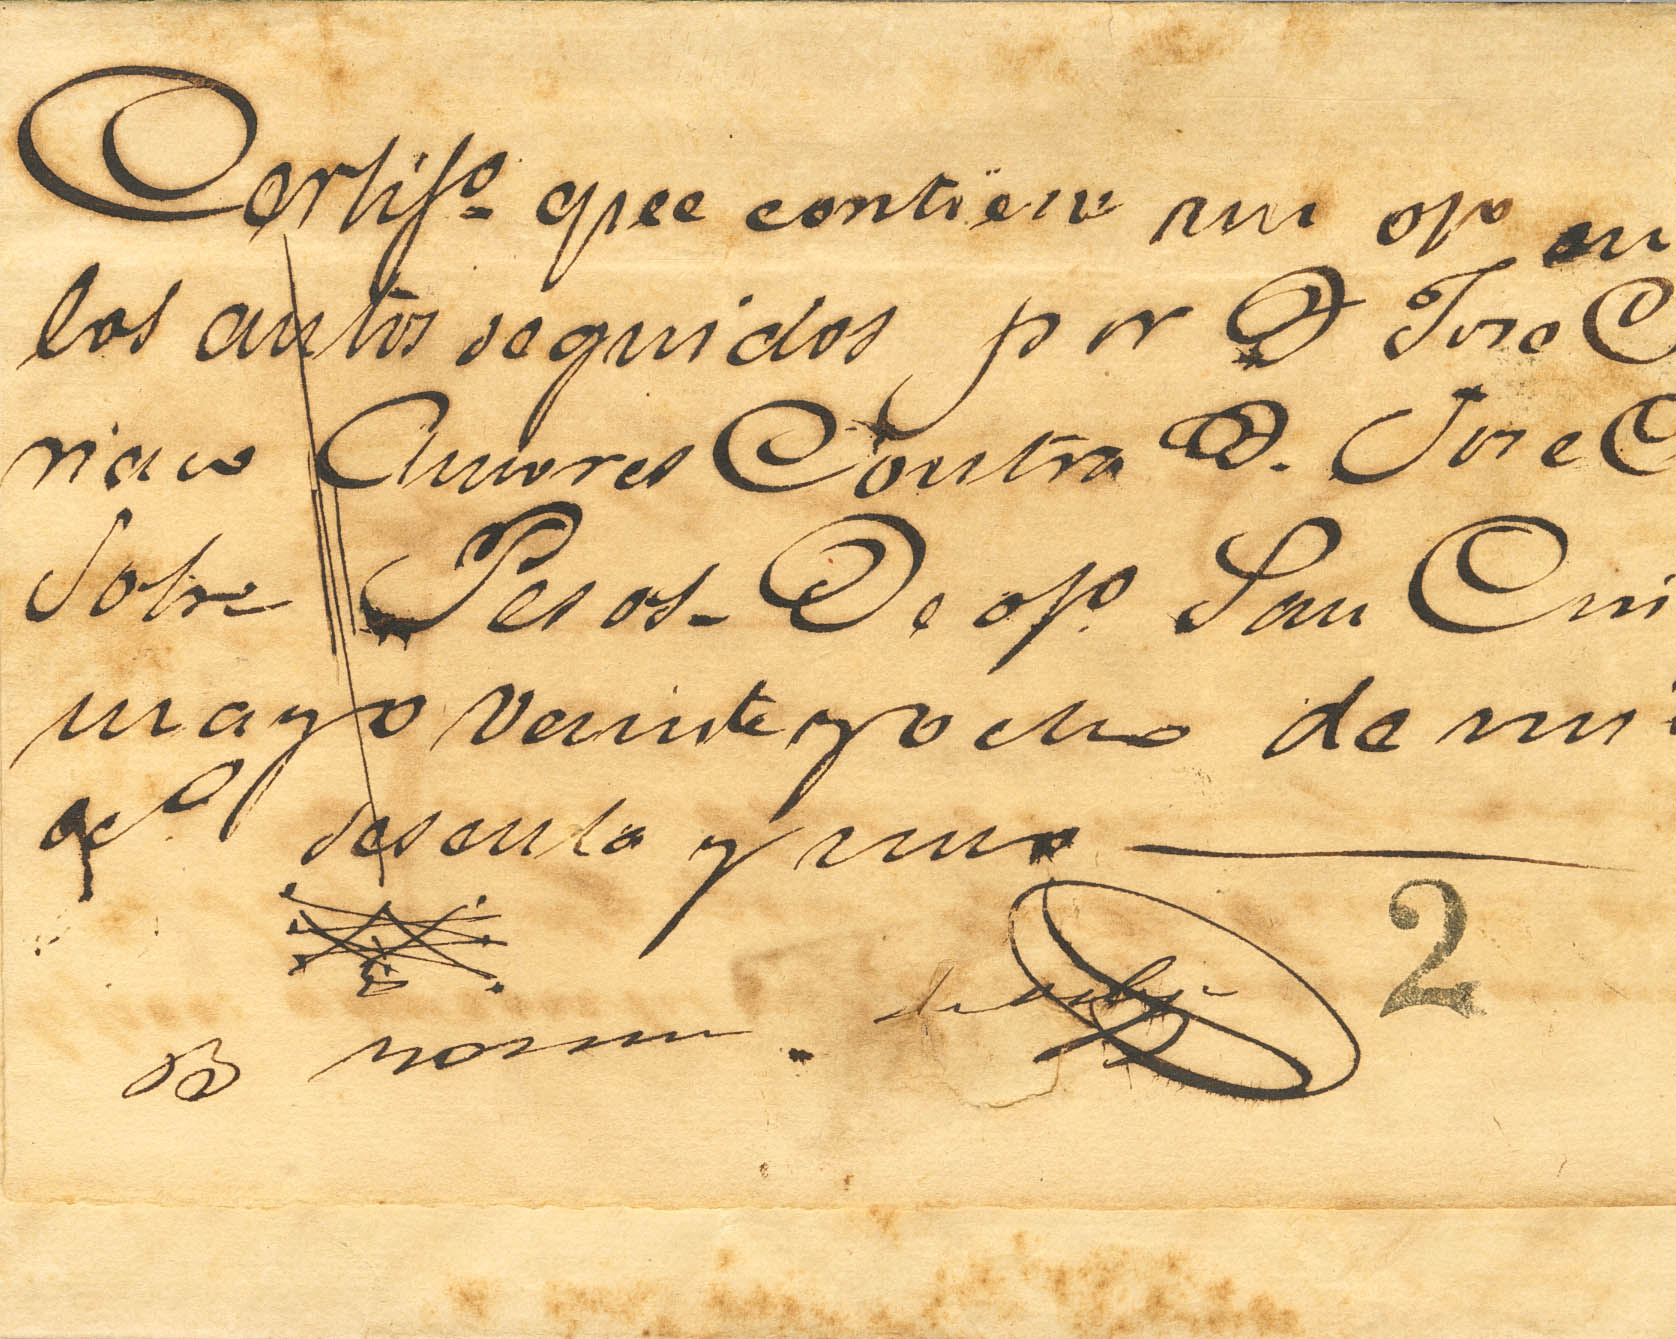 Certifº que contiene un ofº en
los autos seguidos por D Jose C
riaco Amores Contra D. Jose C
Sobre Pesos - De ofº San
mayo veinte y ocho de mi
ocº sesenta y uno
2